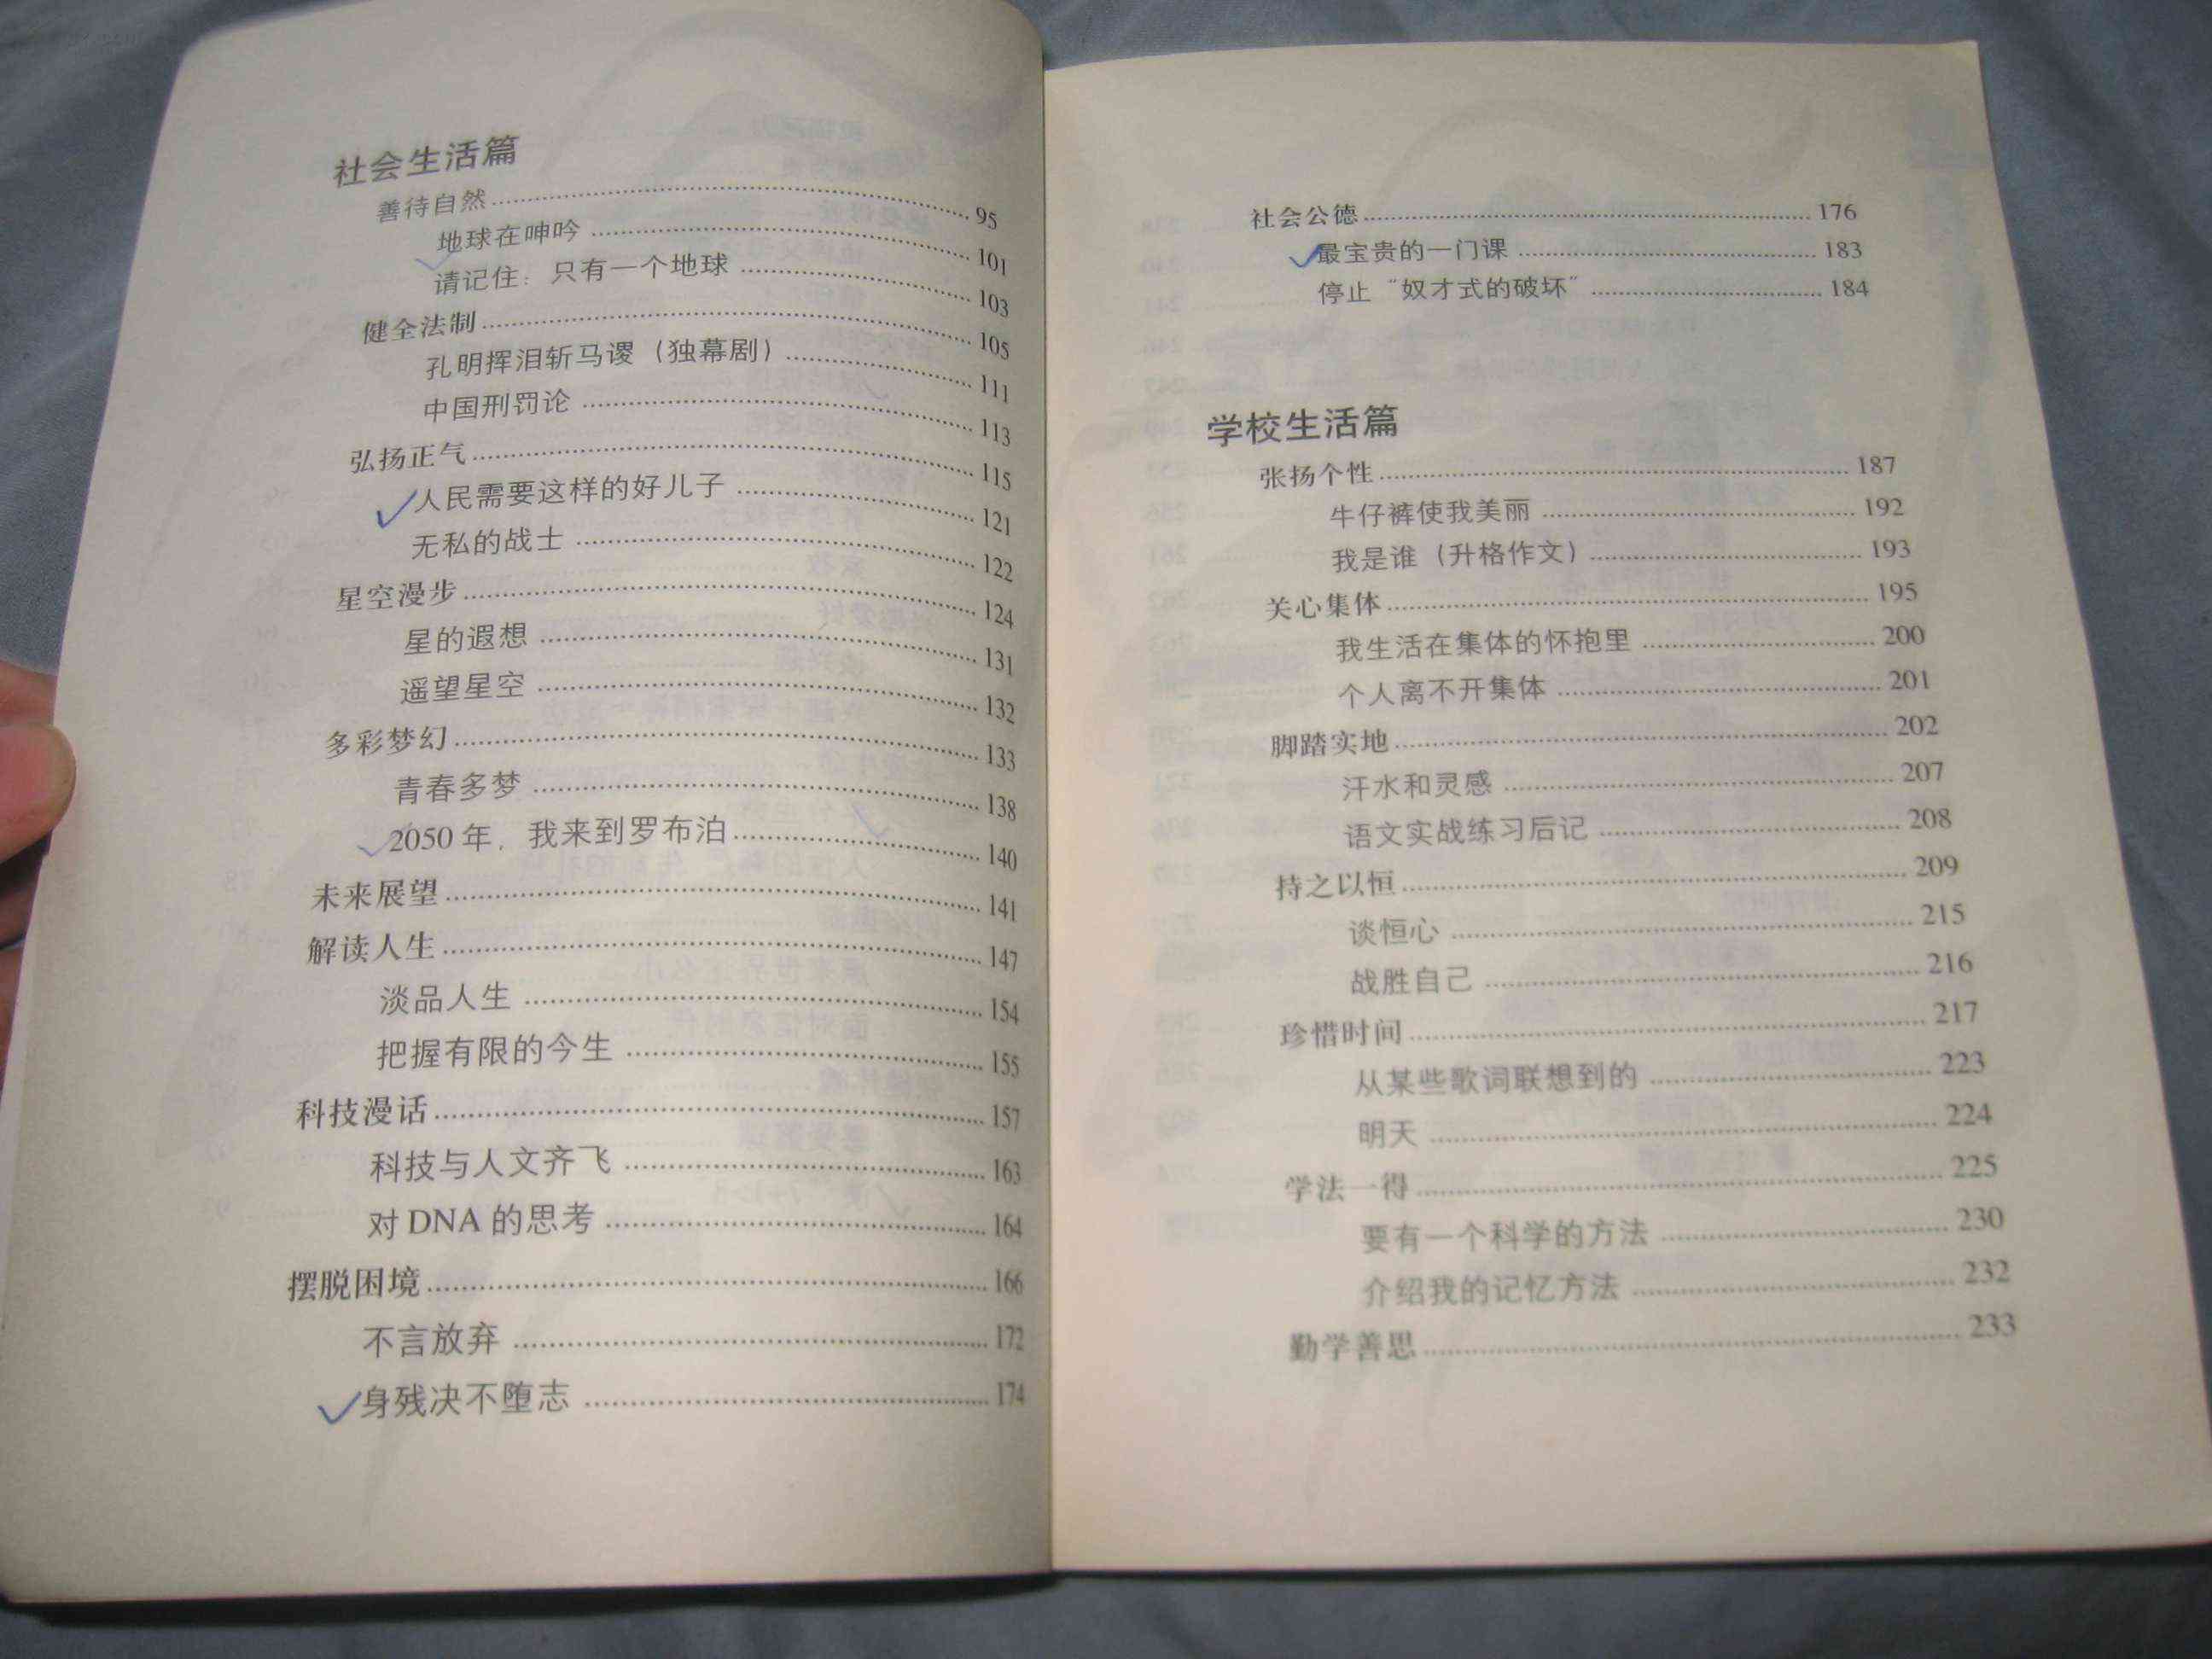 社会生活篇
善待自然 95
地球在呻吟 101
请记住：只有一个地球 103
健全法制 105
孔明挥泪斩马谡（独幕剧） 111
中国刑罚论 113
弘扬正气 115
人民需要这样的好儿子 121
无私的战士 122
星空漫步 124
星的遐想 131
遥望星空 132
多彩梦幻 133
青春多梦 138
2050年，我来到罗布泊 140
未来展望 141
解读人生 147
淡品人生 154
把握有限的今生 155
科技漫话 157
科技与人文齐飞 163
对DNA的思考 164
摆脱困境 166
不言放弃 172
身残决不堕志 174
社会公德 176
最宝贵的一门课 183
停止“奴才式的破坏” 184
学校生活篇
张扬个性 187
牛仔裤使我美丽 192
我是谁（升格作文） 193
关心集体 195
我生活在集体的怀抱里 200
个人离不开集体 201
脚踏实地 202
汗水和灵感 207
语文实战练习后记 208
持之以恒 209
谈恒心 215
战胜自己 216
珍惜时间 217
从某些歌词联想到的 223
明天 224
学法一得 225
要有一个科学的方法 230
介绍我的记忆方法 232
勤学善思 233